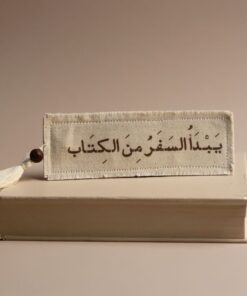 يَبْدَأُ السَفَرُ مِنَ الكِتَاب